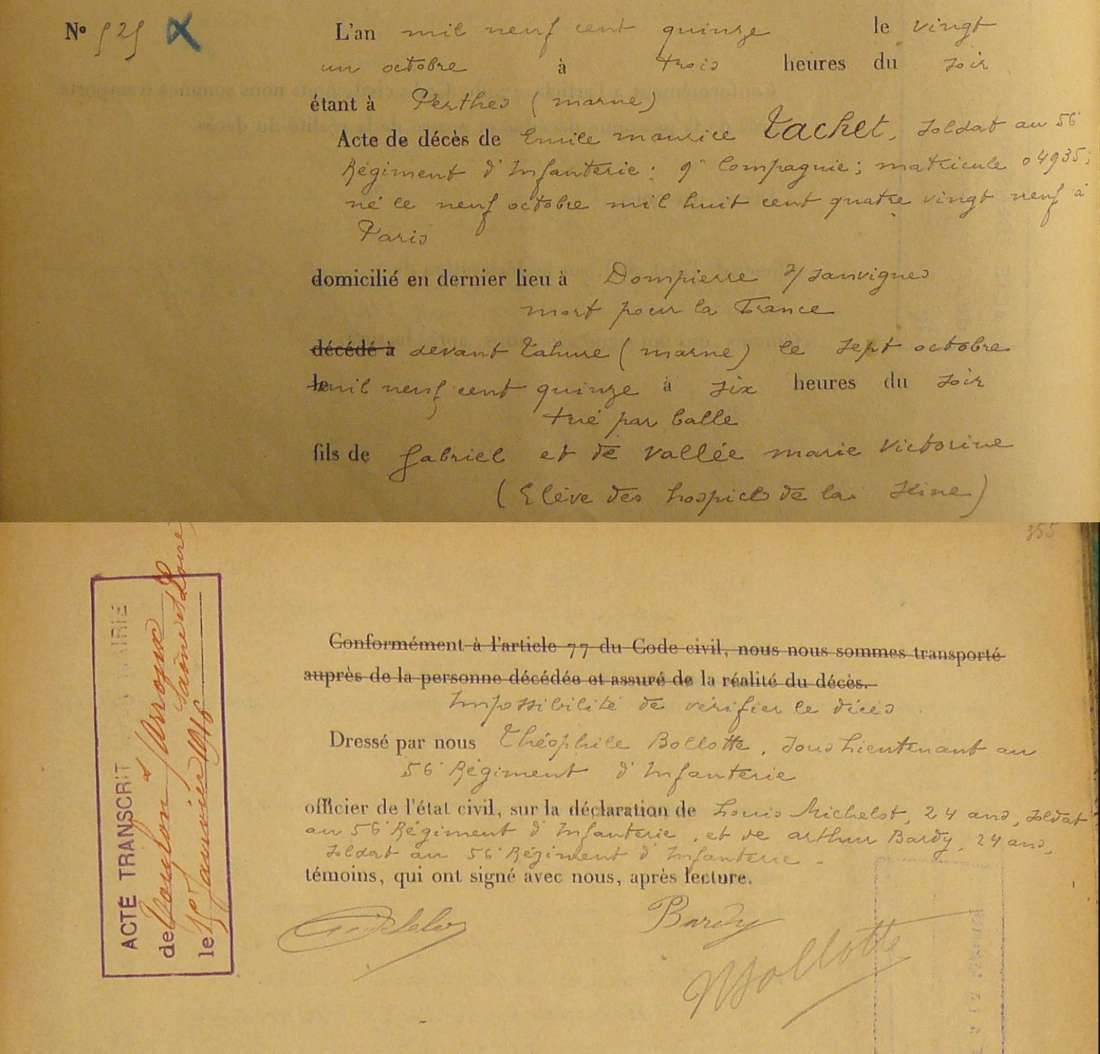 N° 525 X L'an mil neuf cent quinze le vingt
un octobre à trois heures du soir
étant à Perthes (marne)
Acte de décès de Emile maurice Tachet, soldat au 56
Régiment d'Infanterie : 9e Compagnie ; matricule 04935 ;
né le neuf octobre mil huit cent quatre vingt neuf à
Paris
domicilié en dernier lieu à Dompierre s/ Sanvignes
mort pour la France
décédé à devant Tahure (marne) le sept octobre
le mil neuf cent quinze à six heures du soir
tué par balle
fils de Gabriel et de Vallée marie Victorine
(Elève des hospices de la Seine)
355
Conformément à l'article 77 du Code civil, nous nous sommes transporté
auprès de la personne décédée et assuré de la réalité du décès.
Impossibilité de vérifier le décès
Dressé par nous Théophile Bollotte, Sous Lieutenant au
56e Régiment d'Infanterie
officier de l'état civil, sur la déclaration de Louis Michelot, 24 ans, soldat
au 56e Régiment d'Infanterie, et de arthur Bardy, 24 ans,
soldat au 56e Régiment d'Infanterie.
témoins, qui ont signé avec nous, après lecture.
Bardy
Bollotte
ACTE TRANSCRIT MAIRIE
de Saône et Loire
le 15 Janvier 1916